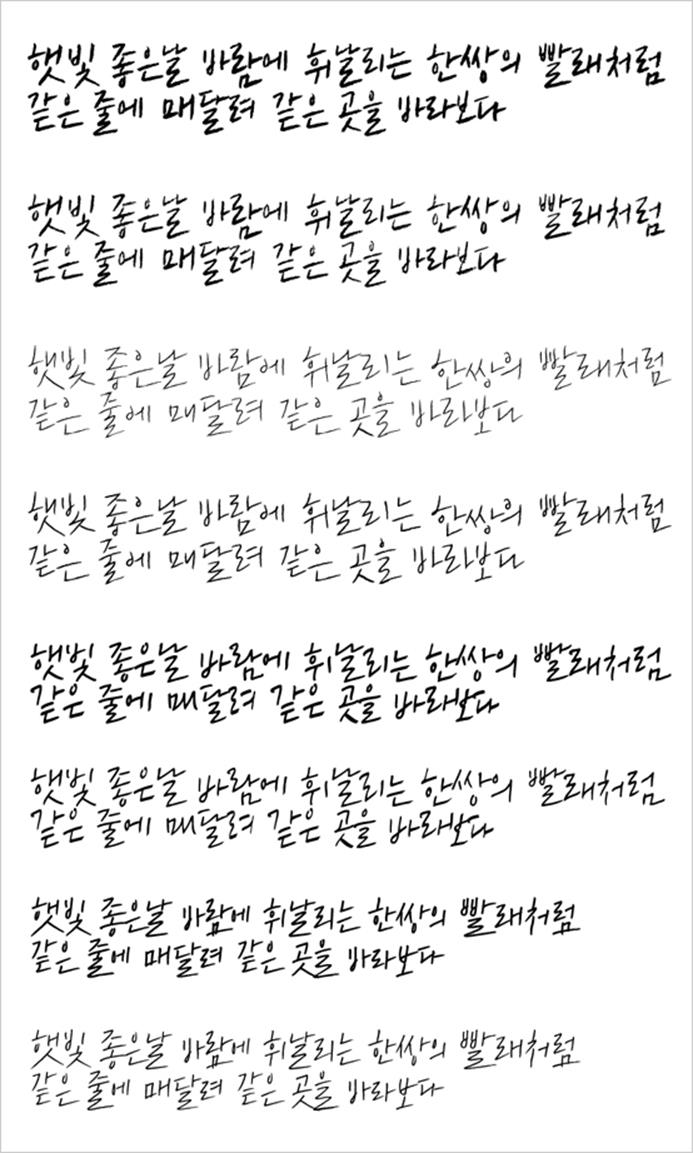 햇빛 좋은날 바람에 휘날리는 한쌍의 빨래처럼
같은 줄에 매달려 같은 곳을 바라보다
햇빛 좋은날 바람에 휘날리는 한쌍의 빨래처럼
같은 줄에 매달려 같은 곳을 바라보다
햇빛 좋은날 바람에 휘날리는 한쌍의 빨래처럼
같은 줄에 매달려 같은 곳을 바라보다
햇빛 좋은날 바람에 휘날리는 한쌍의 빨래처럼
같은 줄에 매달려 같은 곳을 바라보다
햇빛 좋은날 바람에 휘날리는 한쌍의 빨래처럼
같은 줄에 매달려 같은 곳을 바라보다
햇빛 좋은날 바람에 휘날리는 한쌍의 빨래처럼
같은 줄에 매달려 같은 곳을 바라보다
햇빛 좋은날 바람에 휘날리는 한쌍의 빨래처럼
같은 줄에 매달려 같은 곳을 바라보다
햇빛 좋은날 바람에 휘날리는 한쌍의 빨래처럼
같은 줄에 매달려 같은 곳을 바라보다